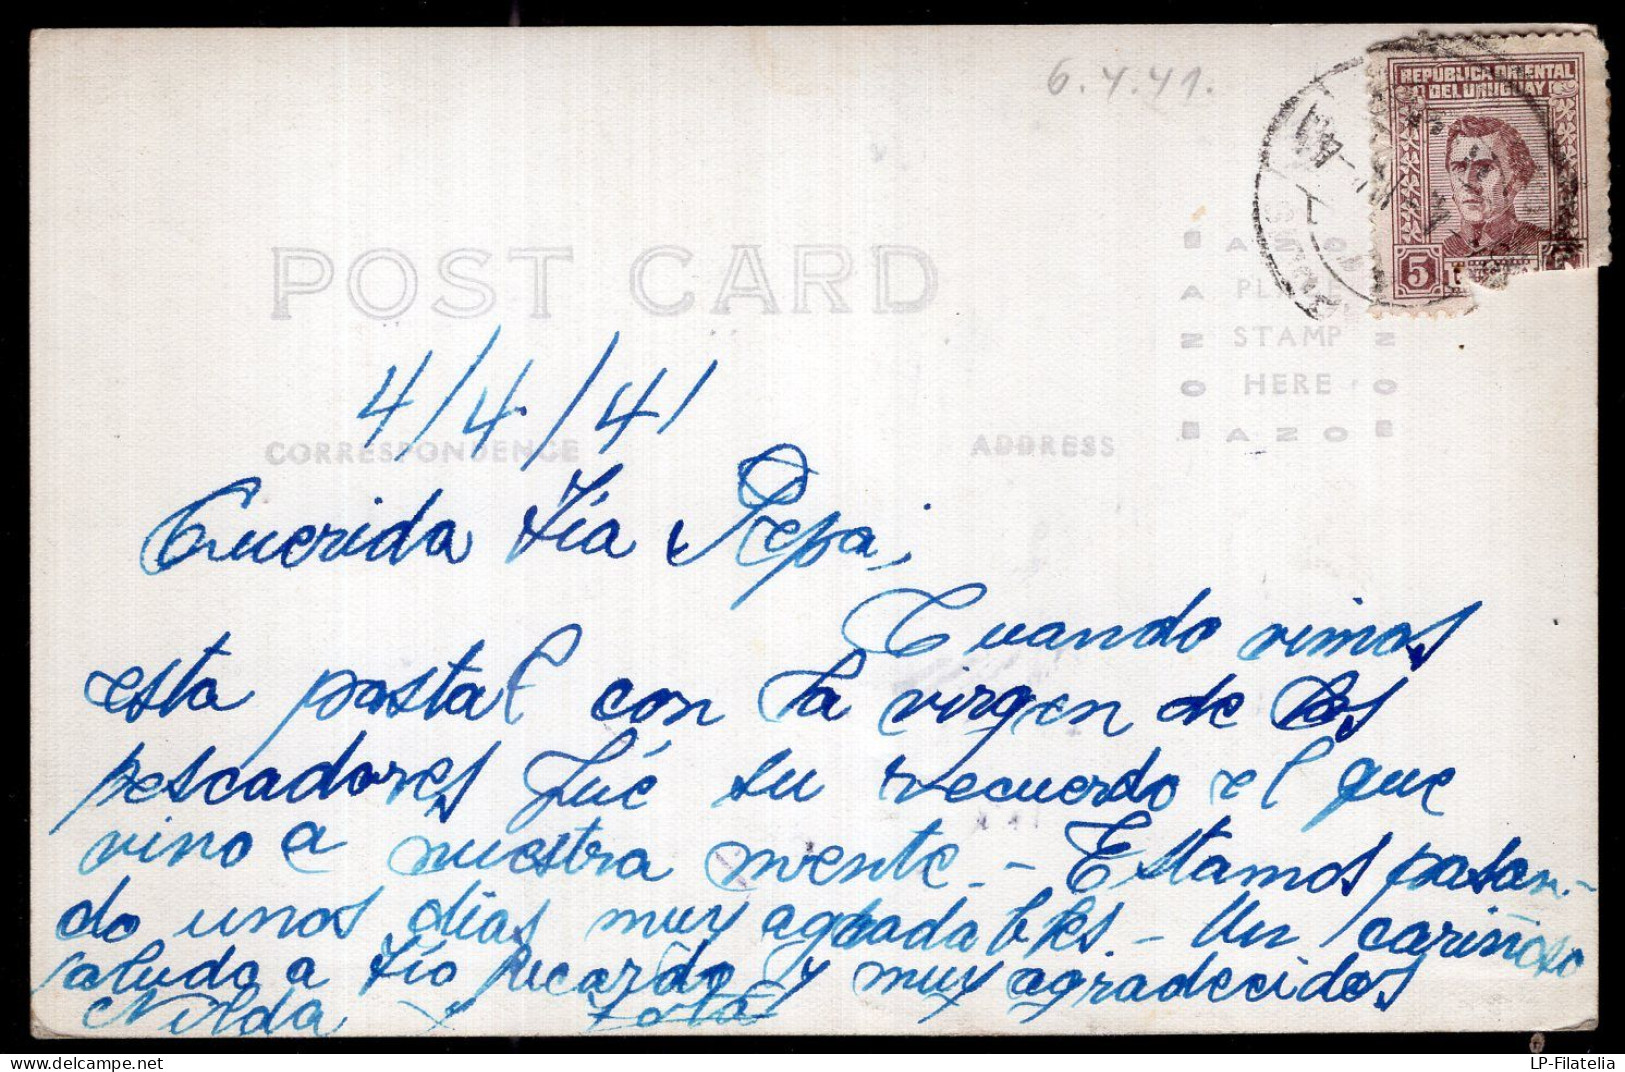 6.4.41.
REPÚBLICA ORIENTAL
DEL URUGUAY
5
POST CARD
AZO
PLACE
STAMP
HERE
AZO
CORRESPONDENCE
ADDRESS
4/4/41
Querida Tía Pepa;
Cuando vimos
esta postal con la virgen de los
pescadores fué su recuerdo el que
vino a nuestra mente. - Estamos pasan-
do unos días muy agradables. - Un cariñoso
saludo a tío Ricardo y muy agradecidos
Nilda y
LP-Filatelia